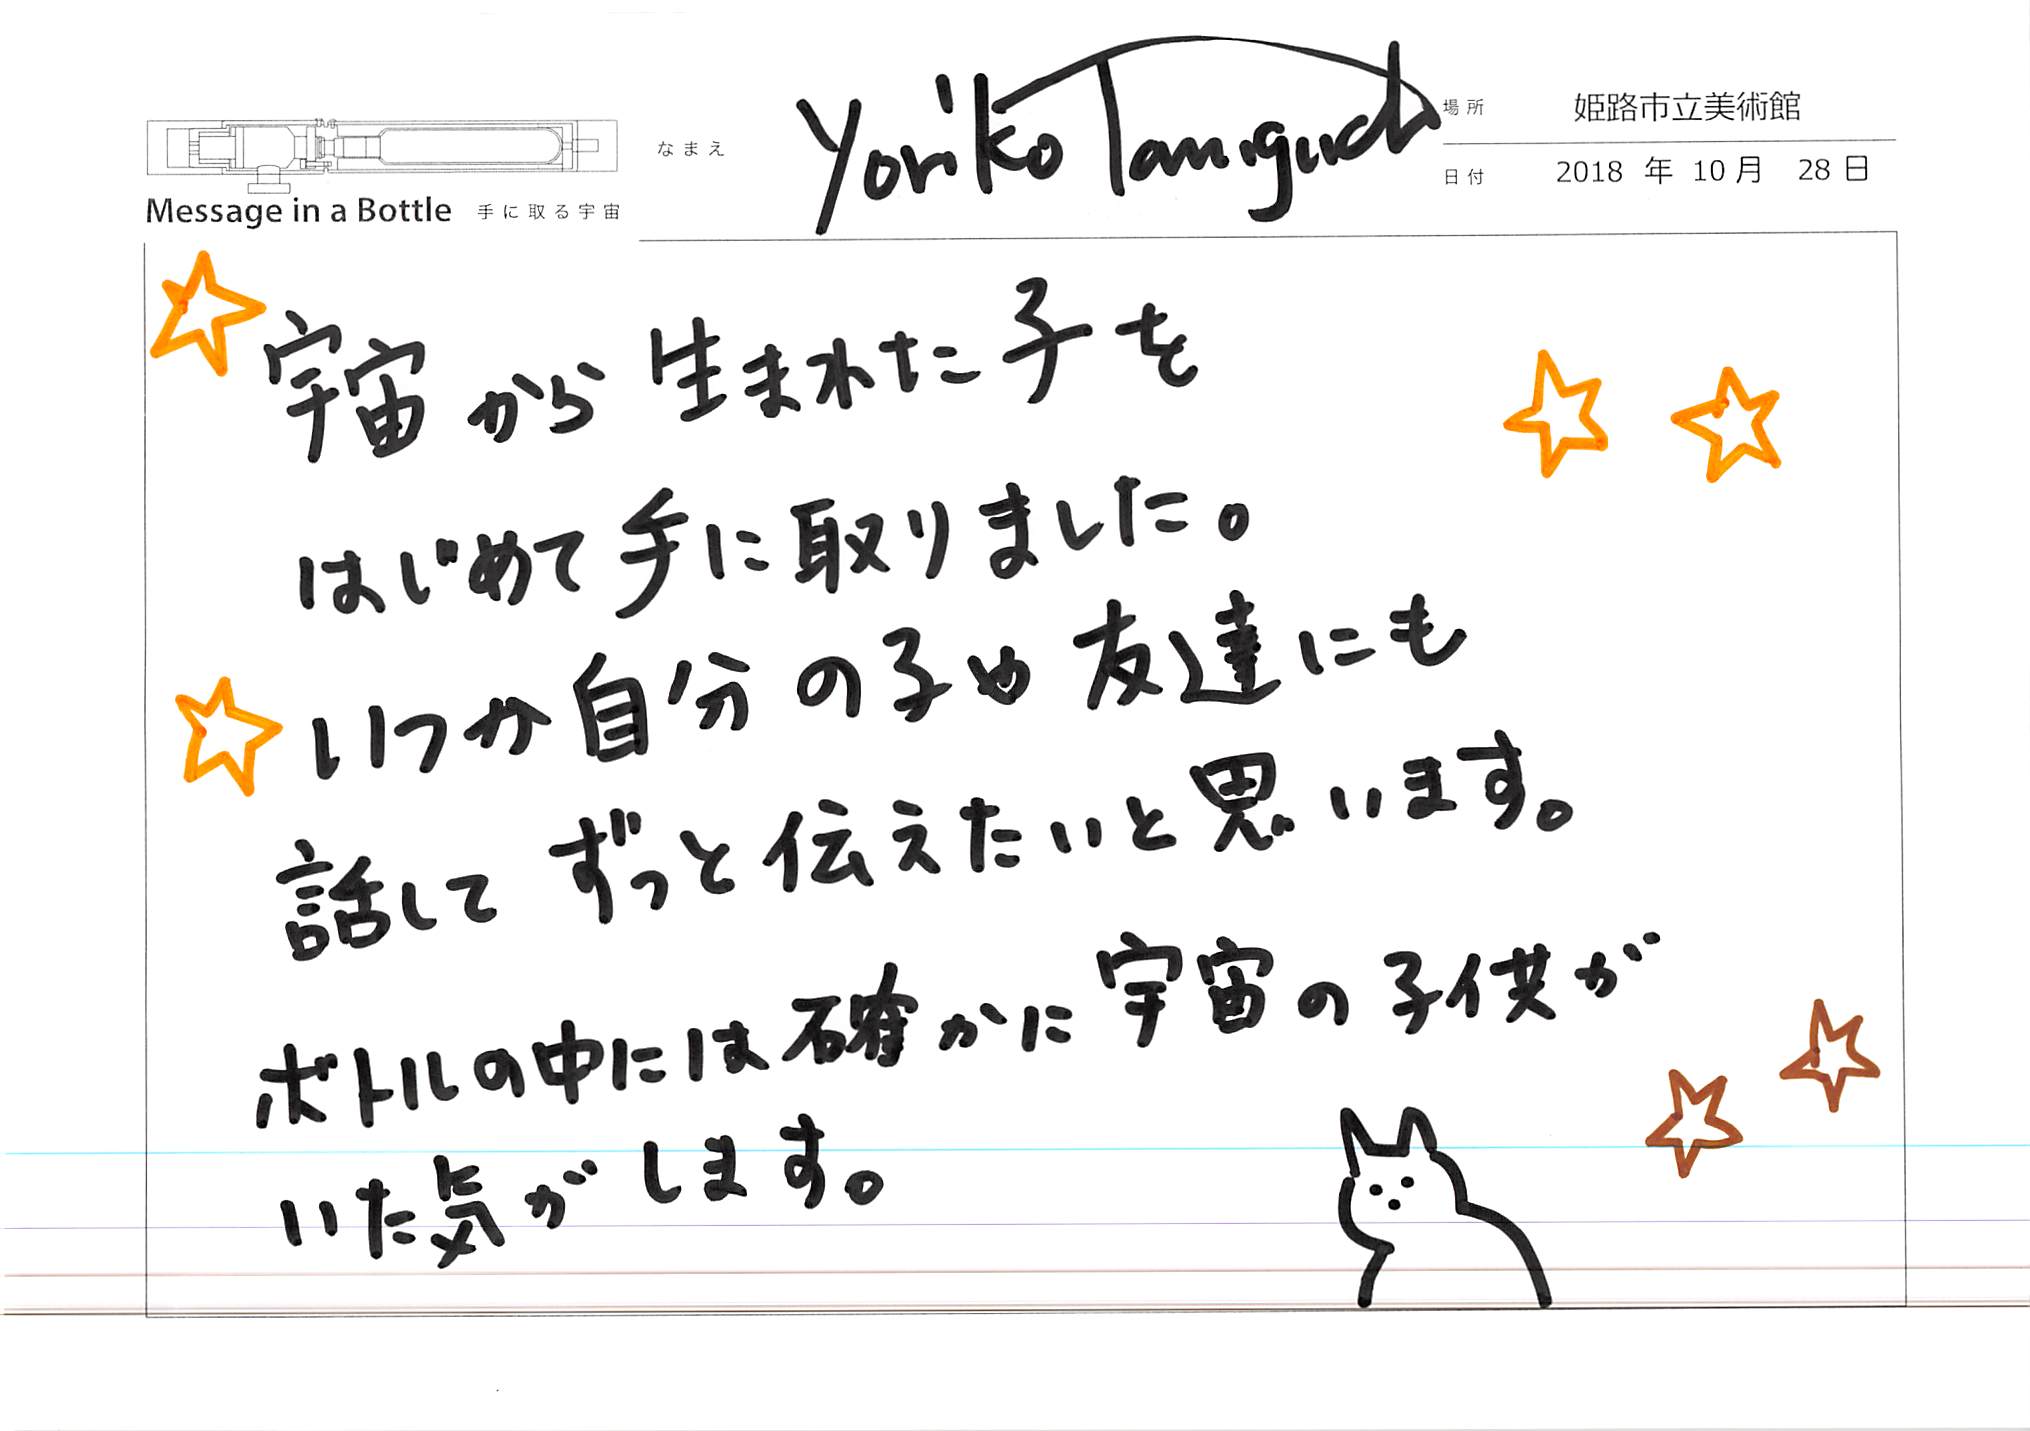 なまえ Yoriko Taniguchi
場所 姫路市立美術館
日付 2018 年 10 月 28 日
Message in a Bottle 手に取る宇宙
宇宙から生まれた子を
はじめて手に取りました。
いつか自分の子や友達にも
話してずっと伝えたいと思います。
ボトルの中には確かに宇宙の子供が
いた気がします。